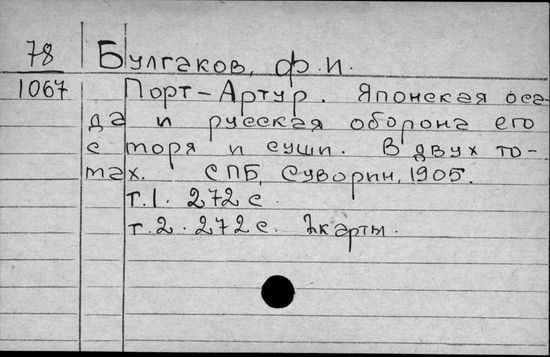 78 Булгаков, Ф.И.
1067 Порт-Артур. Японская оса
да и русская оборона его
с моря и суши. В двух то-
мах. СПБ, Суворин, 1905.
т.1. 272 с.
т.2. 272 с. 2карты.